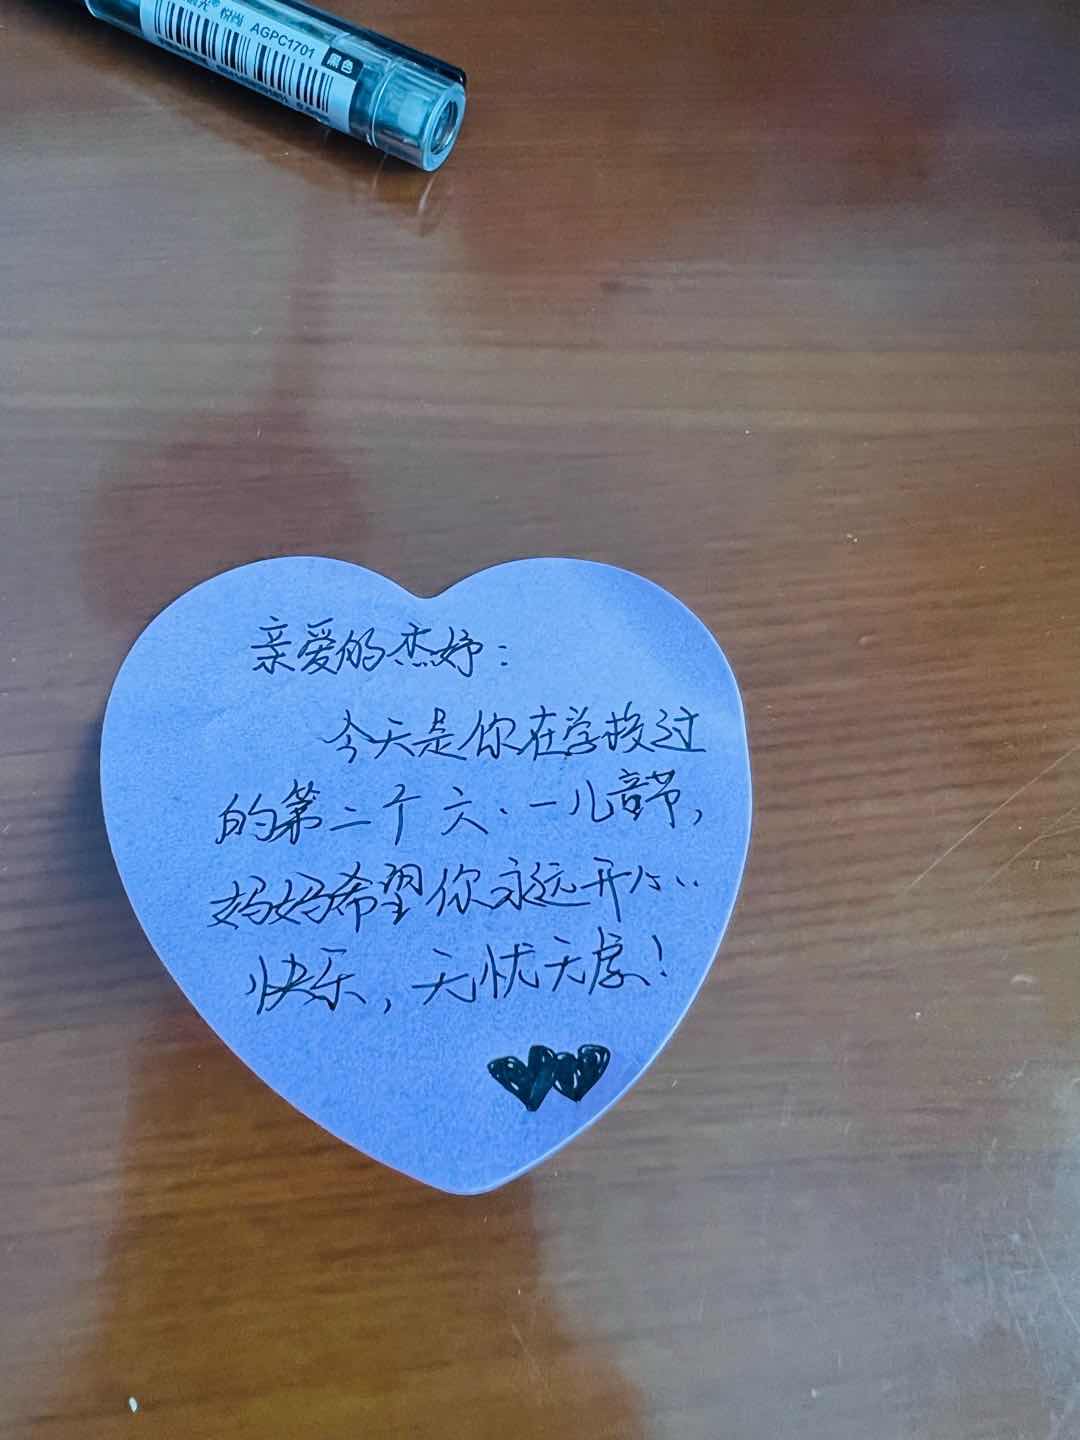 光® 悦尚 AGPC1701 黑色
亲爱的杰妤：
今天是你在学校过
的第二个六·一儿童节，
妈妈希望你永远开心
快乐，无忧无虑！